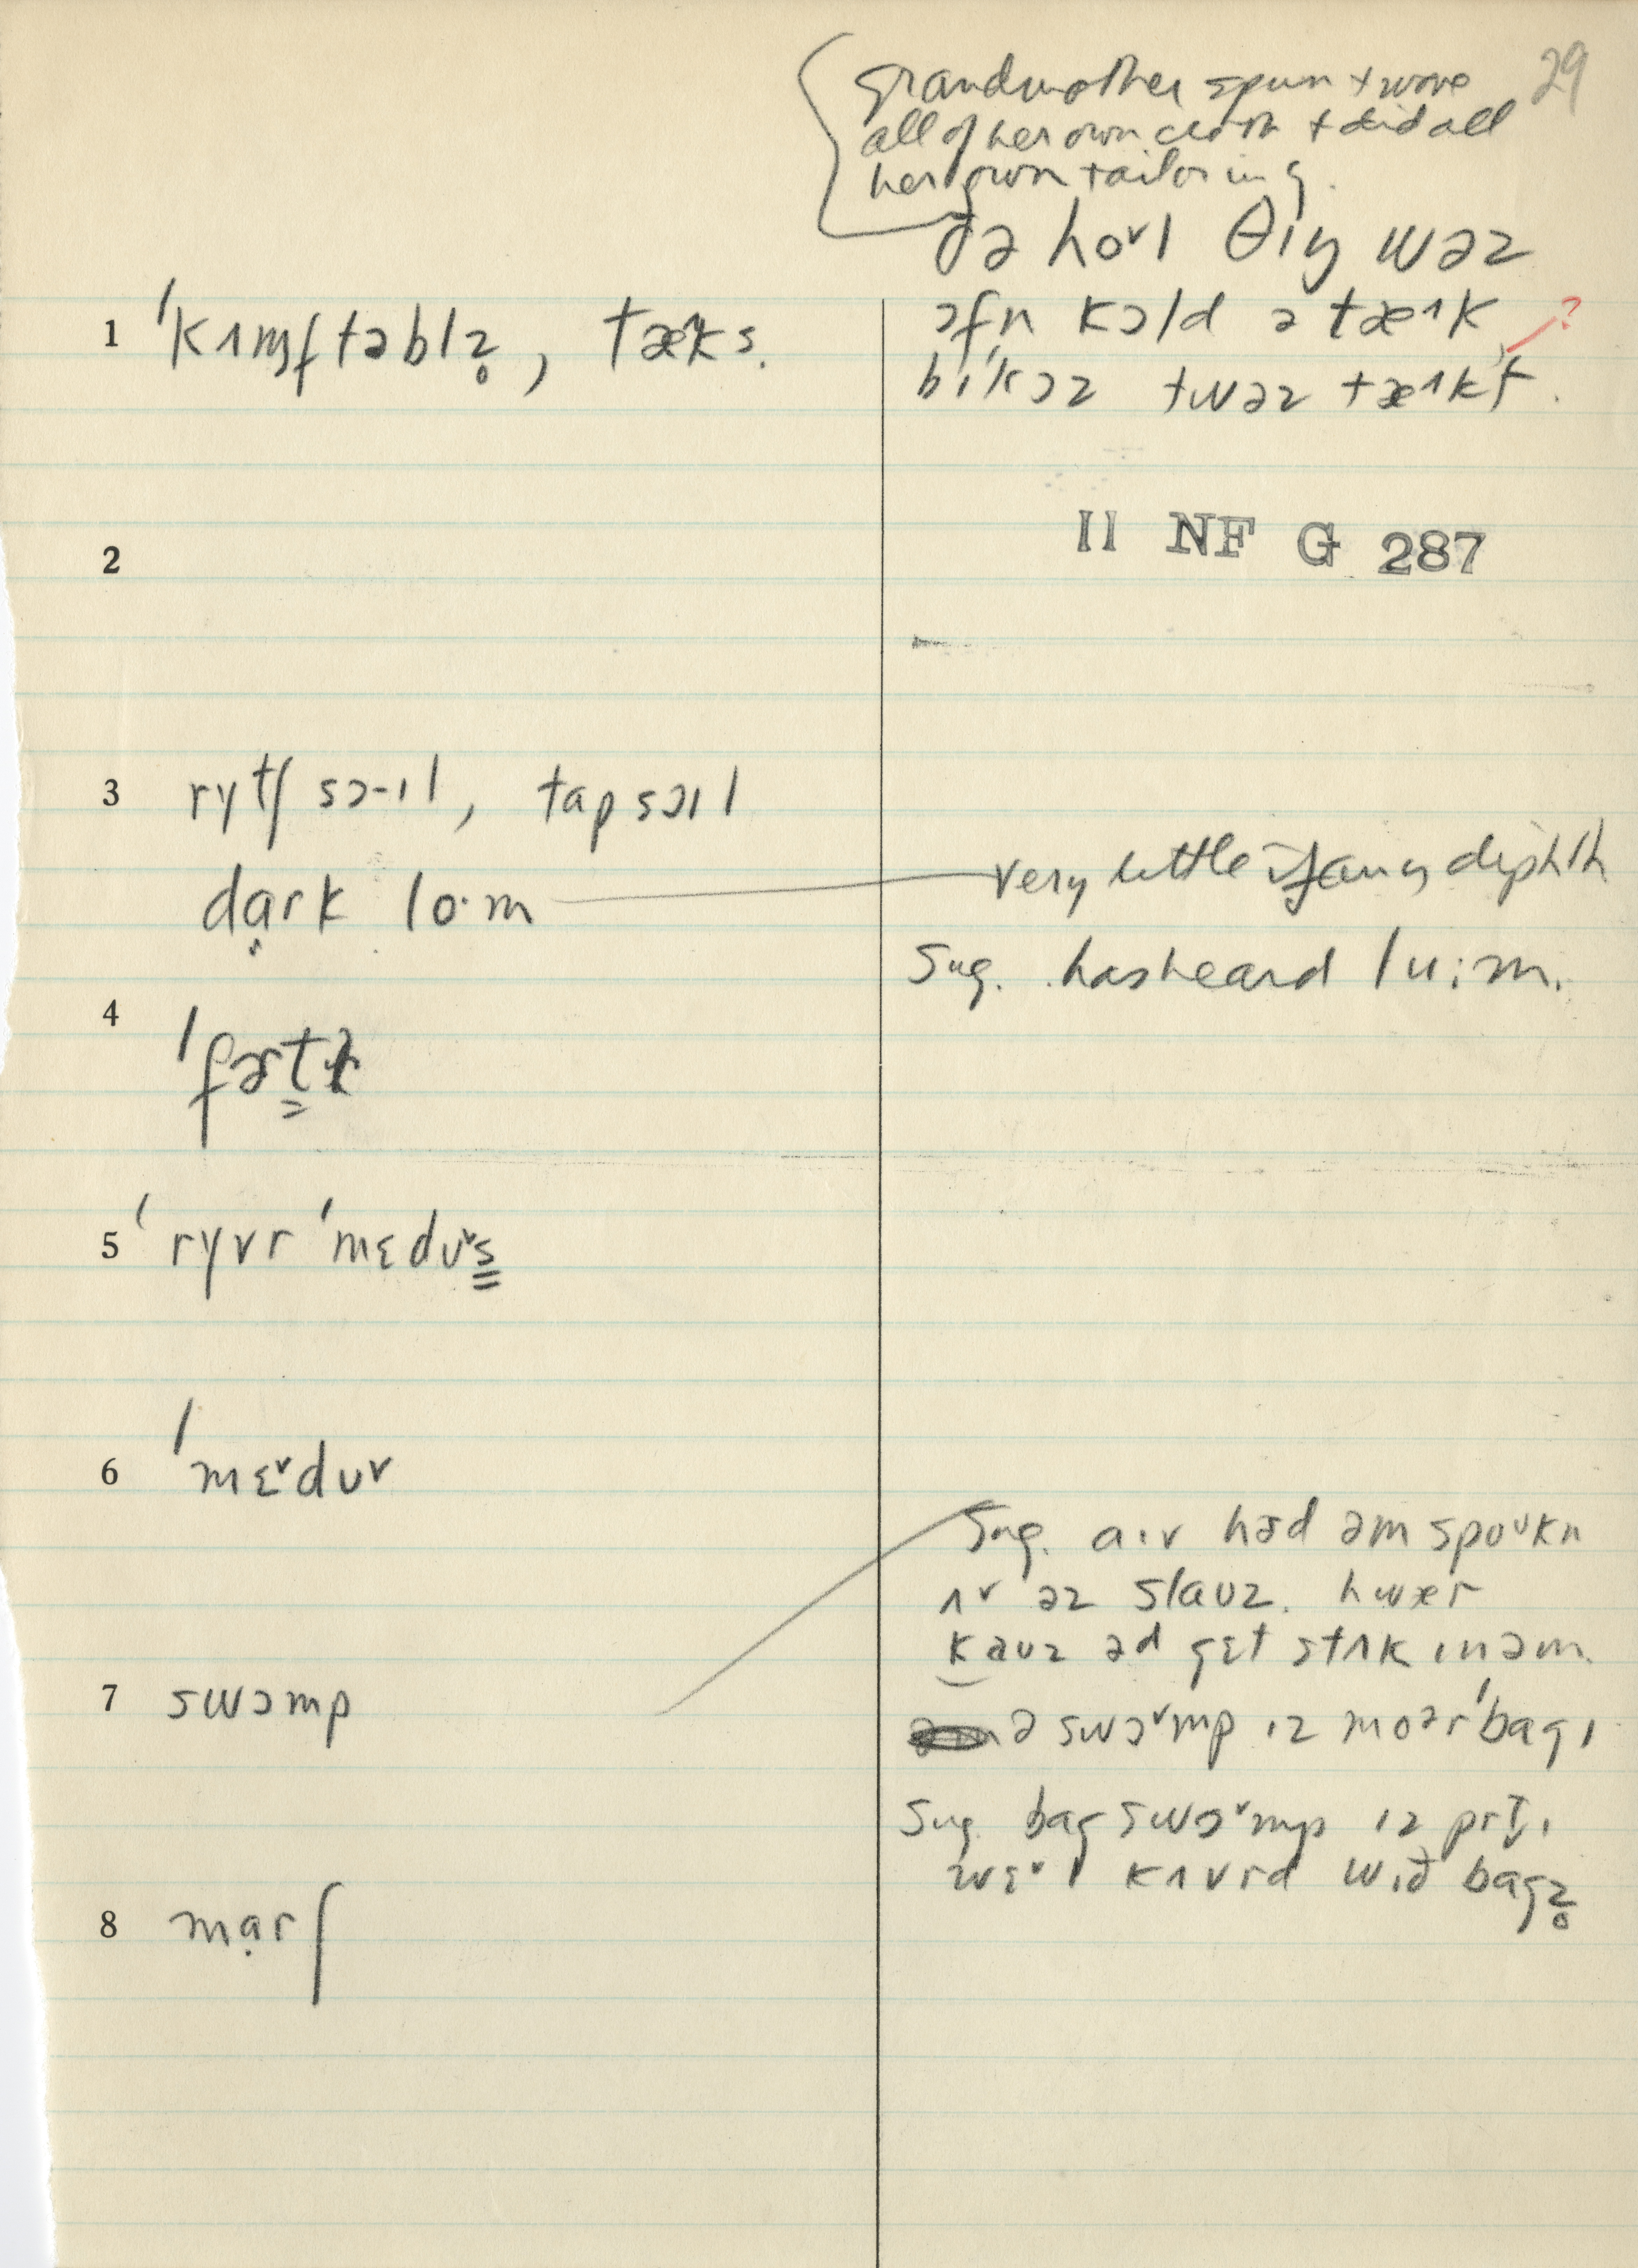 29
grandmother spun + wove
all of her own cloth + did all
her own tailoring.
ðə hoᵛl θɪŋ wəz
1 ˈkʌmftəblz̥, tæˆks.
ɔfn kɔld ə tæˆk
bɪˈkɔz twəz tæˆkt. ?
2
II NF G 287
3 rytʃ sɔ-ɪl, tap sɔɪl
dạrk lo·m
very little if any diphth
Sug. has heard lu:m.
4
5 ˈryvr ˈmɛdʊˇs
6 ˈmɛˇdʊˇ
Sug. a·ɪv həd əm spoʊkn
ʌv əz slaʊz. hwær
kaʊz əd gɛt stʌk ɪn əm.
7 swɔmp
ə swɔˇmp ɪz moər ˈbagɪ
Sug. bag swɔˇmp ɪz prt̬ɪ
wɛˇl kʌvrd wɪð bagz̥
8 mạrʃ